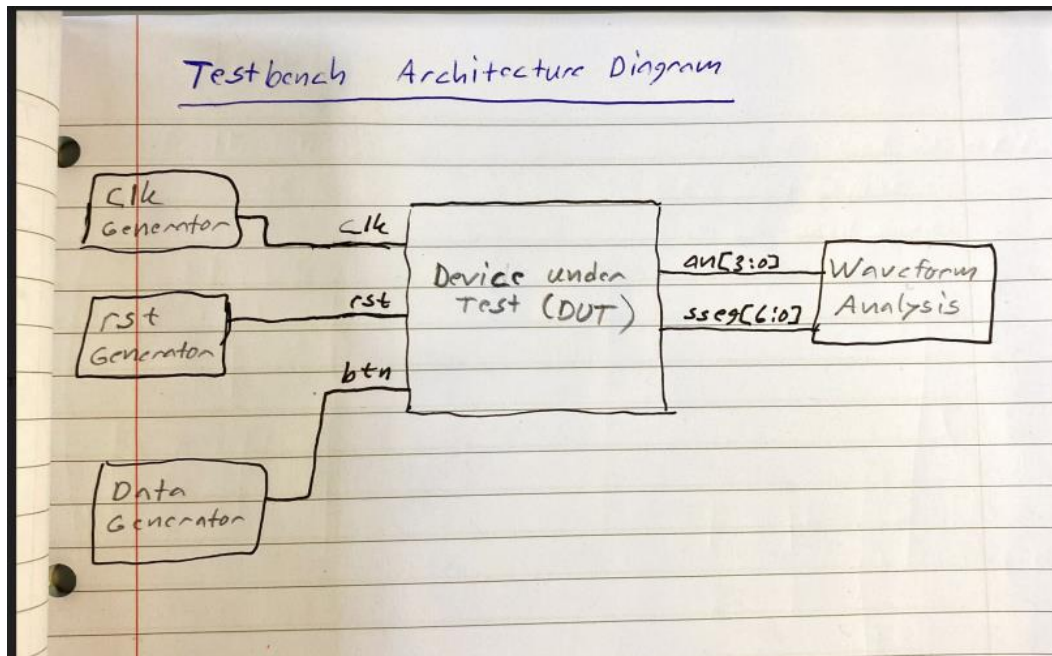 Testbench Architecture Diagram
Clk
Generator
clk
rst
Generator
rst
Data
Generator
btn
Device under
Test (DUT)
an[3:0]
sseg[6:0]
Waveform
Analysis